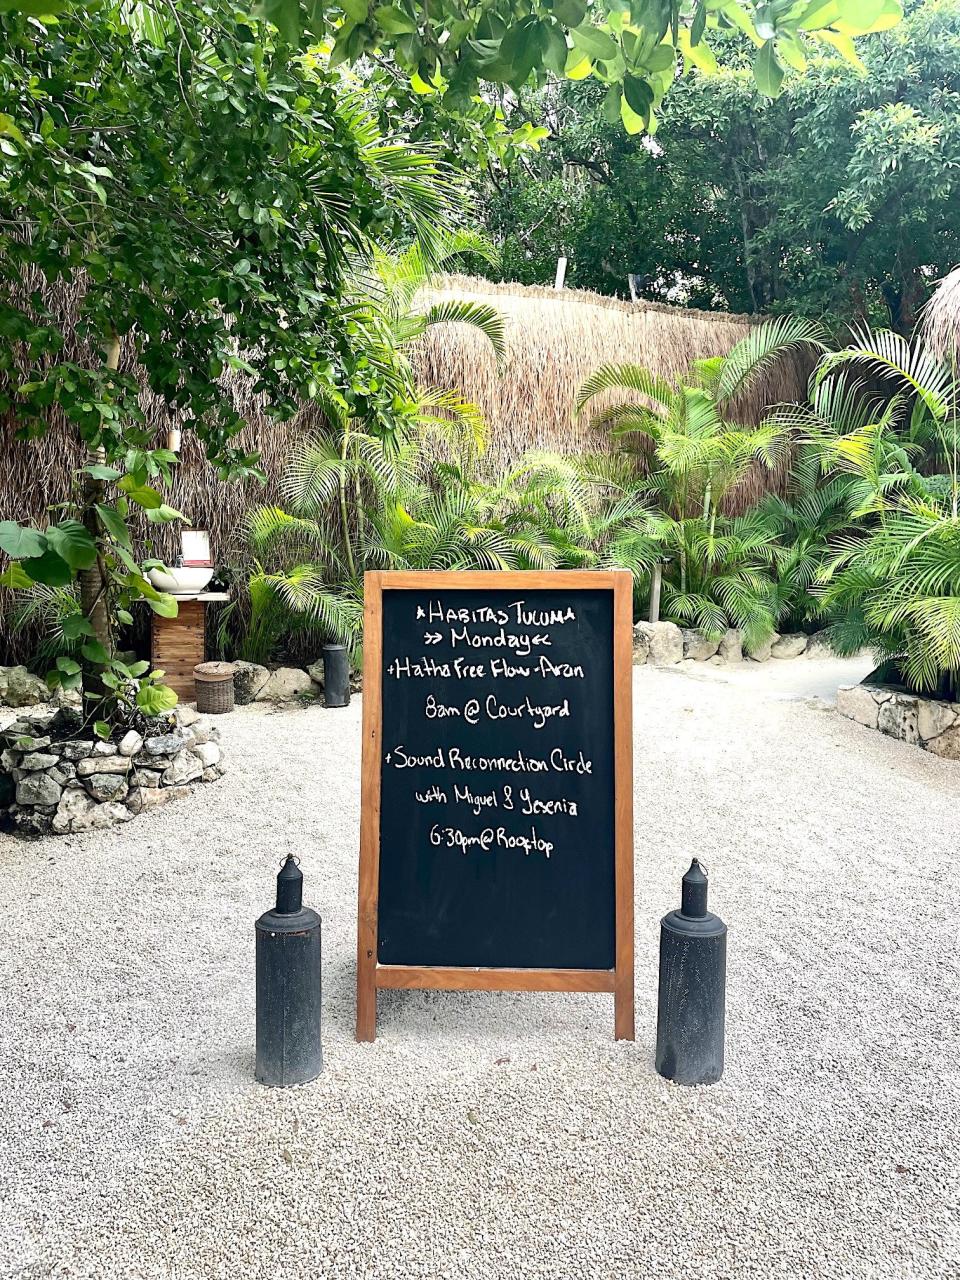 *HABITAS TULUM*
>> Monday <<
+Hatha Free Flow - Aran
8am @ Courtyard
+Sound Reconnection Circle
with Miguel & Yesenia
6:30pm @ Rooftop